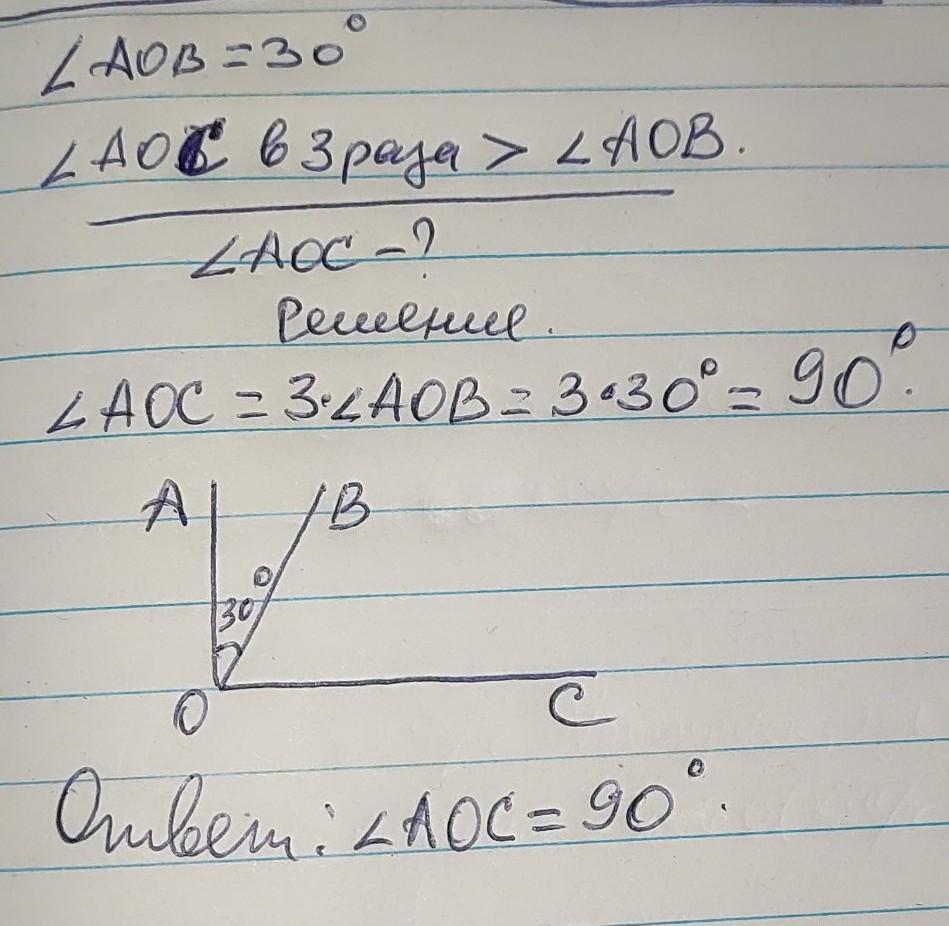 ∠AOB = 30°
∠AOC в 3 раза > ∠AOB.
∠AOC - ?
Решение.
∠AOC = 3·∠AOB = 3·30° = 90°.
A B
30°
O C
Ответ: ∠AOC = 90°.